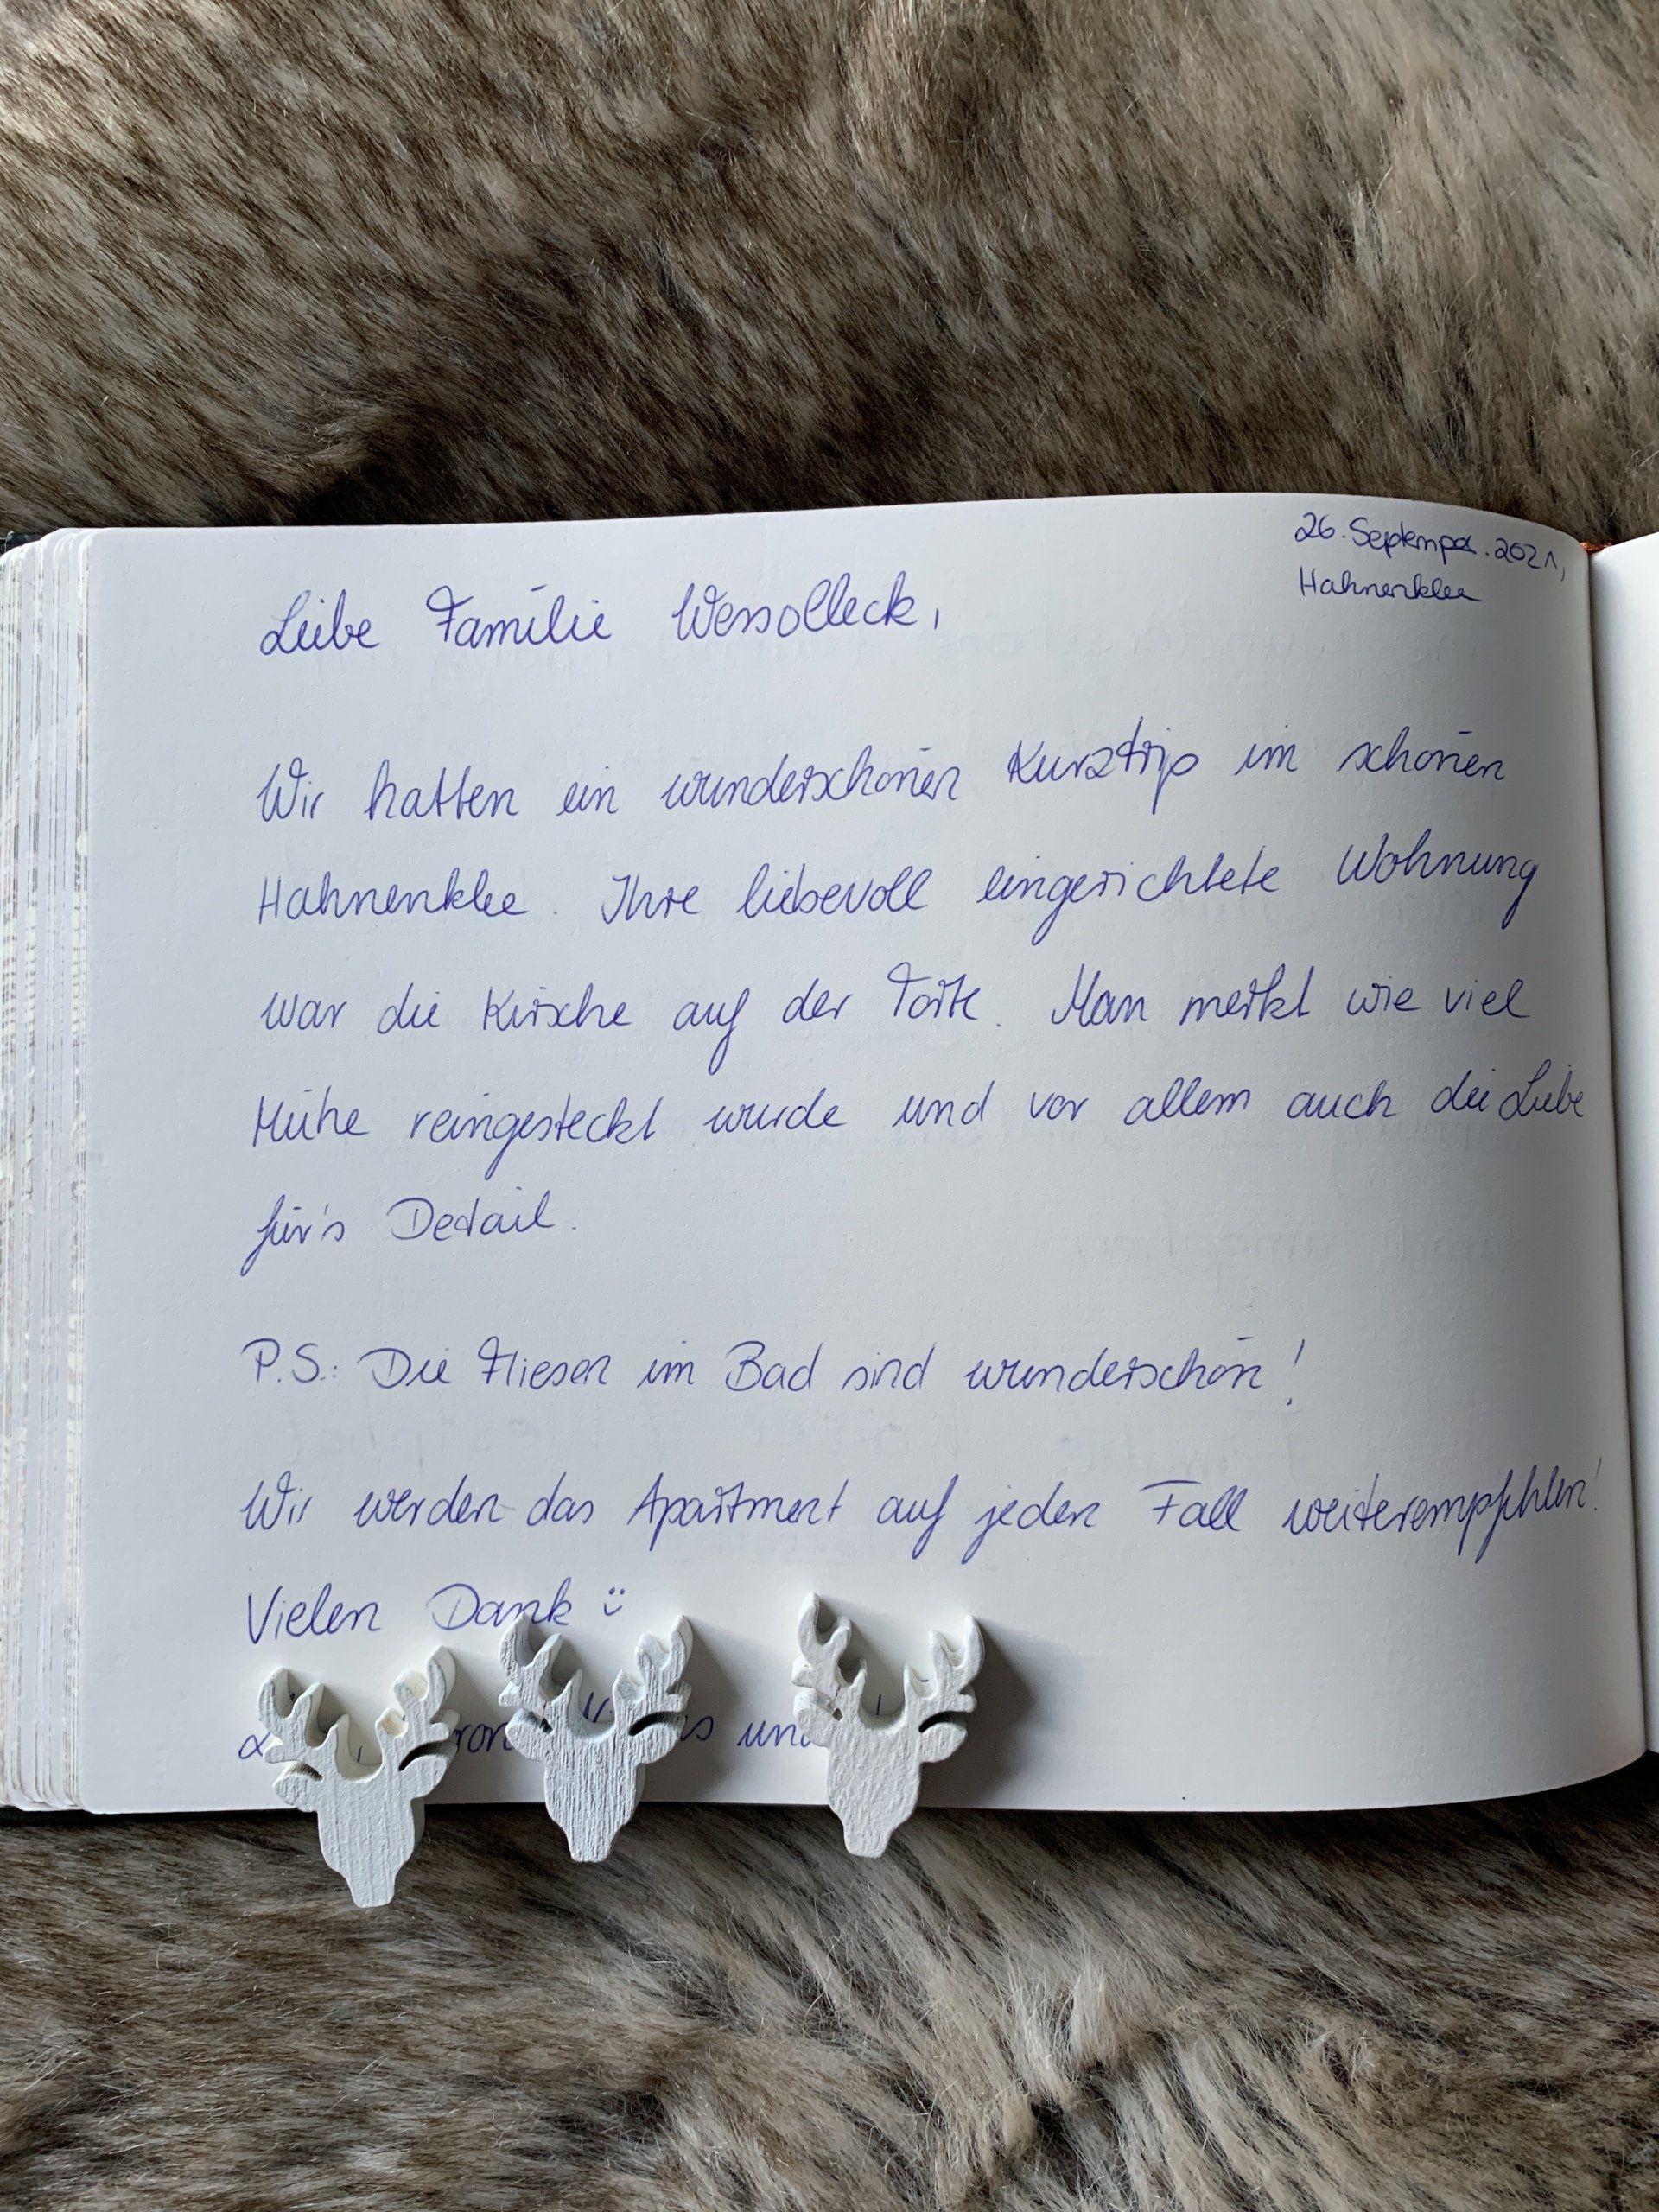 26. September. 2021,
Hahnenklee
Liebe Familie Wessolleck,
Wir hatten ein wunderschönen Kurztrip im schönen
Hahnenklee. Ihre liebevoll eingerichtete Wohnung
war die Kirsche auf der Torte. Man merkt wie viel
Mühe reingesteckt wurde und vor allem auch die Liebe
für's Detail.
P.S.: Die Fliesen im Bad sind wunderschön!
Wir werden das Apartment auf jeden Fall weiterempfehlen!
Vielen Dank